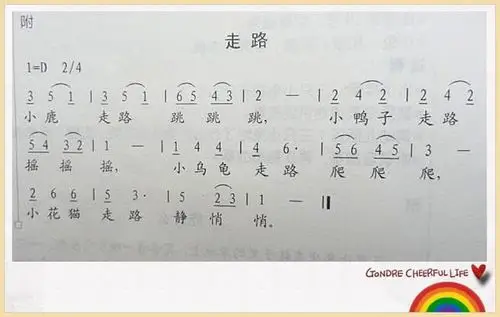 附
走路
1=D 2/4
3 5 1 | 3 5 1 | 6 5 4 3 | 2 — | 2 4 2 | 2 4 2
小鹿 走路 跳跳跳， 小鸭子 走路
5 4 3 2 | 1 — | 1 4 4 | 4 6· | 5 6 4 5 | 3 —
摇摇摇， 小乌龟 走路 爬爬爬，
2 6 6 | 5 3· | 5 2 3 | 1 — ‖
小花猫 走路 静悄悄。
GONDRE CHEERFUL LIFE